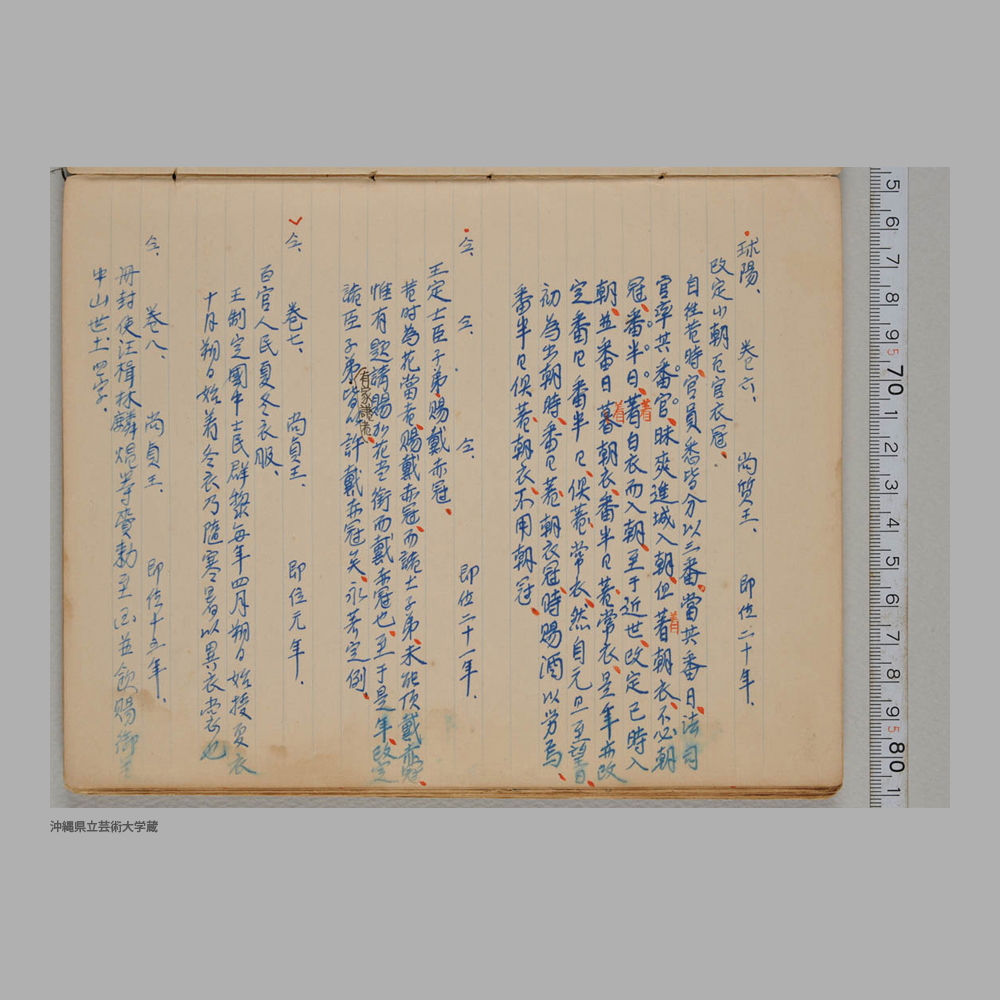 球陽、 巻六、 尚質王、 即位二十年、
改定出朝百官衣冠、
自往昔時、官員悉皆分以三番、當其番日、法司
官率其番官、昧爽進城入朝、但著朝衣、不必朝
冠、番半日、著白衣而入朝、至于近世、改定已時入
朝、並番日著朝衣、番半日、著常衣、是年亦改
定番日番半日、俱著常衣、然自元旦至望日、
初為出朝時、番日著朝衣冠、時賜酒以労焉、
番半日俱著朝衣、不用朝冠、
仝、 仝、 仝、 即位二十一年、
王定士臣子弟賜戴赤冠、
昔時為花當者、賜戴赤冠、而諸士子弟、未能頂戴赤冠、
惟有題請賜于花当銜而戴赤冠也、至于是年、改定
諸臣子弟皆以許戴赤冠矣、永著定例、
有家譜者
仝、 巻七、 尚貞王、 即位元年、
百官人民夏冬衣服、
王制定國中士民群黎每年四月朔日始授夏衣
十月朔日始着冬衣乃隨寒暑以異衣裳也
仝、 巻八、 尚貞王、 即位十五年、
冊封使汪楫林麟焻等齎勅至国並欽賜御書
中山世土四字、
着
着
着
5 6 7 8 9 70 1 2 3 4 5 6 7 8 9 80 1
沖縄県立芸術大学蔵